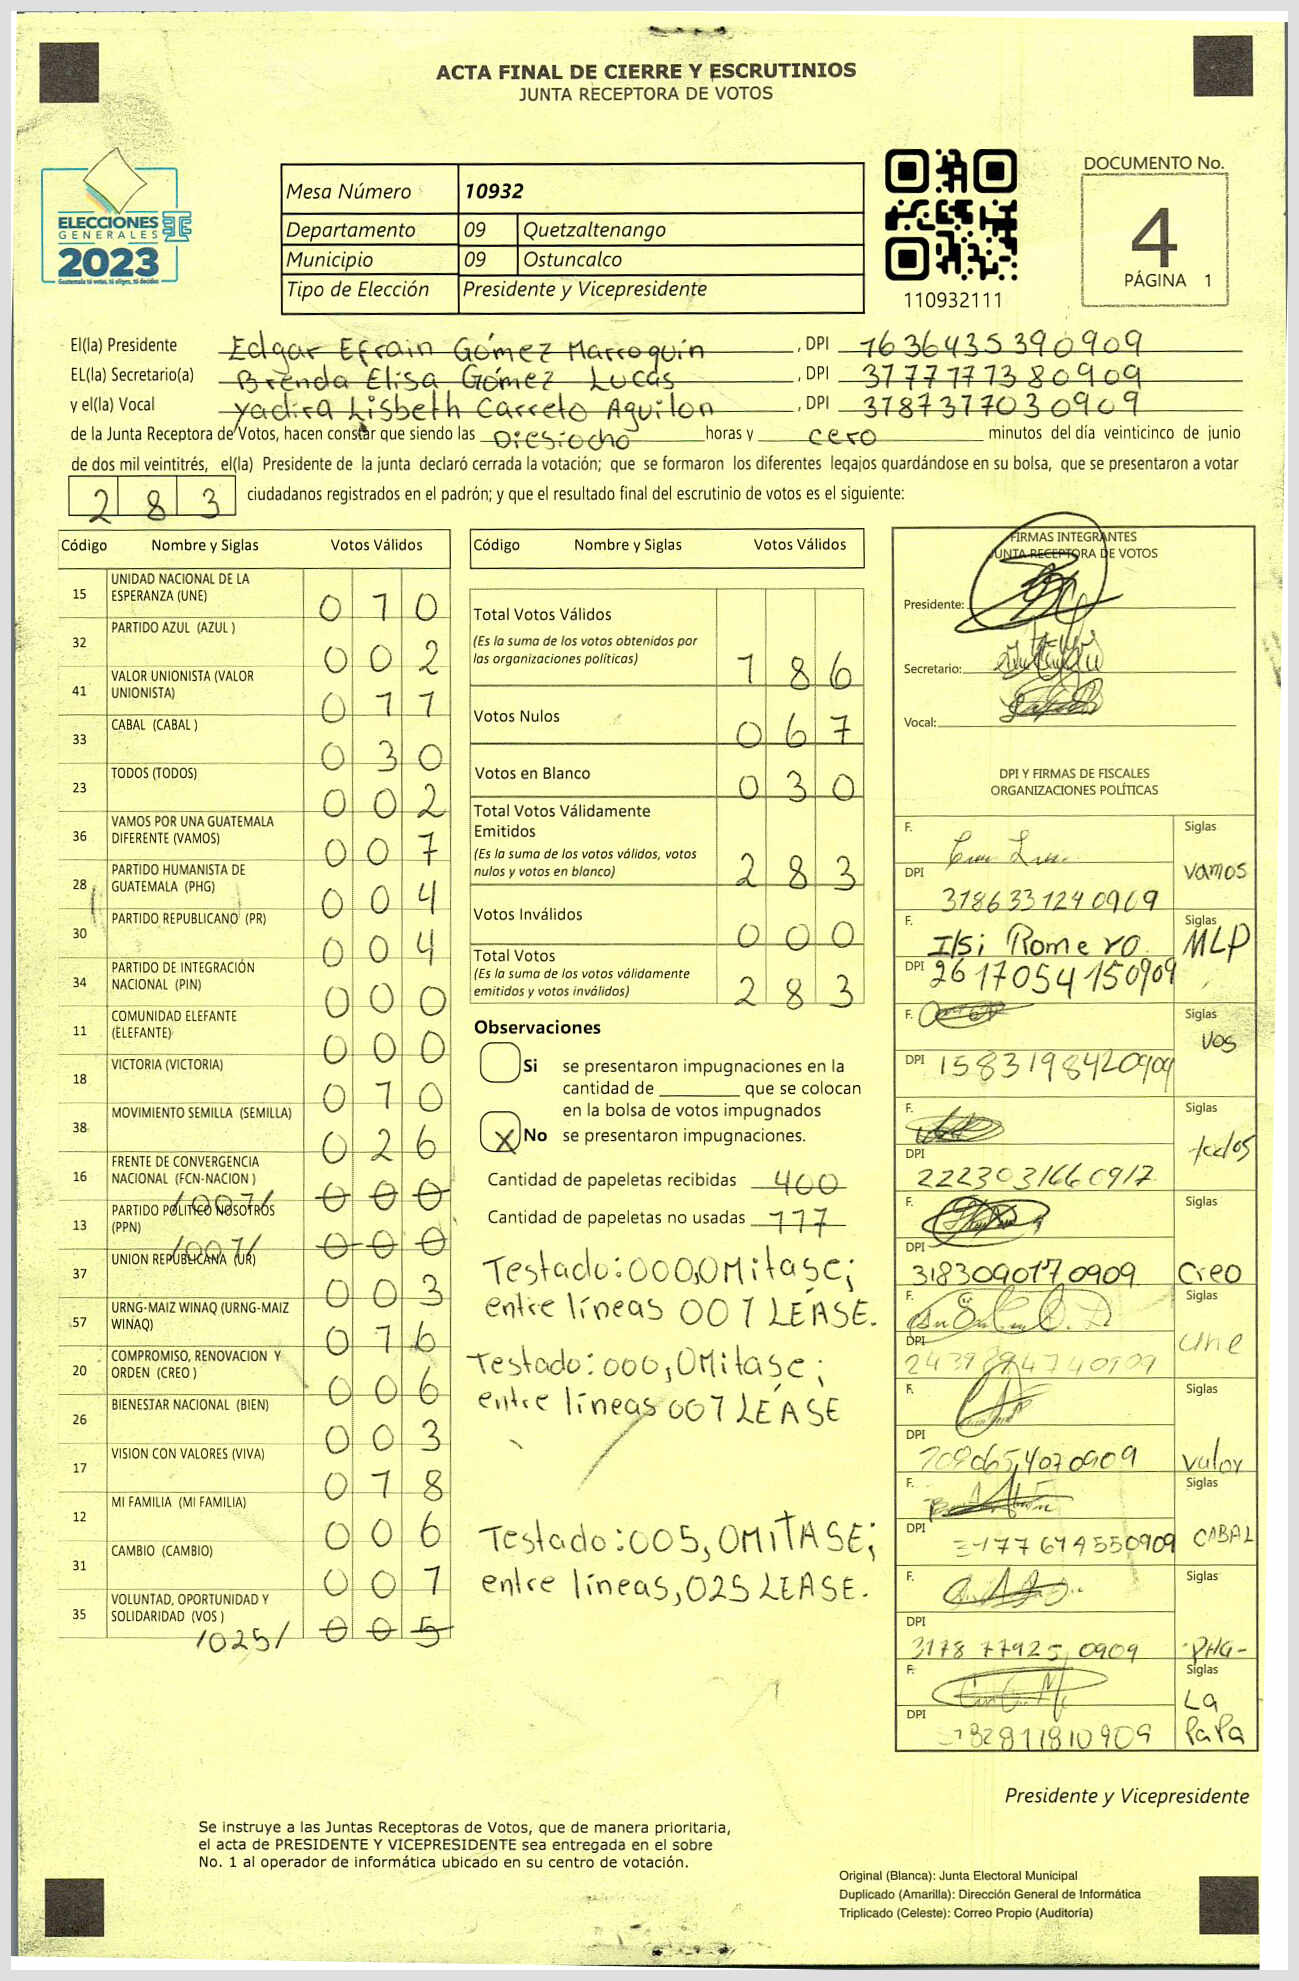 ACTA FINAL DE CIERRE Y ESCRUTINIOS
JUNTA RECEPTORA DE VOTOS
ELECCIONES
GENERALES
2023
Guatemala tú votas, tú eliges, tú decides
Mesa Número 10932
Departamento 09 Quetzaltenango
Municipio 09 Ostuncalco
Tipo de Elección Presidente y Vicepresidente
110932111
DOCUMENTO No.
4
PÁGINA 1
El(la) Presidente Edgar Efrain Gómez Marroquin, DPI 1636435390909
EL(la) Secretario(a) Brenda Elisa Gómez Lucas, DPI 3177717380909
y el(la) Vocal Yadira Lisbeth Carreto Aguilon, DPI 3187377030909
de la Junta Receptora de Votos, hacen constar que siendo las Diesiocho horas y cero minutos del día veinticinco de junio
de dos mil veintitrés, el(la) Presidente de la junta declaró cerrada la votación; que se formaron los diferentes legajos guardándose en su bolsa, que se presentaron a votar
283 ciudadanos registrados en el padrón; y que el resultado final del escrutinio de votos es el siguiente:
Código Nombre y Siglas Votos Válidos
15 UNIDAD NACIONAL DE LA ESPERANZA (UNE) 010
32 PARTIDO AZUL (AZUL ) 002
41 VALOR UNIONISTA (VALOR UNIONISTA) 011
33 CABAL (CABAL ) 030
23 TODOS (TODOS) 002
36 VAMOS POR UNA GUATEMALA DIFERENTE (VAMOS) 007
28 PARTIDO HUMANISTA DE GUATEMALA (PHG) 004
30 PARTIDO REPUBLICANO (PR) 004
34 PARTIDO DE INTEGRACIÓN NACIONAL (PIN) 000
11 COMUNIDAD ELEFANTE (ELEFANTE) 000
18 VICTORIA (VICTORIA) 010
38 MOVIMIENTO SEMILLA (SEMILLA) 026
16 FRENTE DE CONVERGENCIA NACIONAL (FCN-NACION ) /001/ 000
13 PARTIDO POLITICO NOSOTROS (PPN) /001/ 000
37 UNION REPUBLICANA (UR) 003
57 URNG-MAIZ WINAQ (URNG-MAIZ WINAQ) 016
20 COMPROMISO, RENOVACION Y ORDEN (CREO ) 006
26 BIENESTAR NACIONAL (BIEN) 003
17 VISION CON VALORES (VIVA) 018
12 MI FAMILIA (MI FAMILIA) 006
31 CAMBIO (CAMBIO) 001
35 VOLUNTAD, OPORTUNIDAD Y SOLIDARIDAD (VOS ) /025/ 005
Código Nombre y Siglas Votos Válidos
Total Votos Válidos 186
(Es la suma de los votos obtenidos por
las organizaciones políticas)
Votos Nulos 067
Votos en Blanco 030
Total Votos Válidamente
Emitidos 283
(Es la suma de los votos válidos, votos
nulos y votos en blanco)
Votos Inválidos 000
Total Votos 283
(Es la suma de los votos válidamente
emitidos y votos inválidos)
Observaciones
Si se presentaron impugnaciones en la
cantidad de ________ que se colocan
en la bolsa de votos impugnados
X No se presentaron impugnaciones.
Cantidad de papeletas recibidas 400
Cantidad de papeletas no usadas 117
Testado:000,OMitase;
entre líneas 001 LEASE.
Testado:000,OMitase;
entre líneas 001 LEASE
Testado:005,OMITASE;
entre líneas,025 LEASE.
FIRMAS INTEGRANTES
JUNTA RECEPTORA DE VOTOS
Presidente:
Secretario:
Vocal:
DPI Y FIRMAS DE FISCALES
ORGANIZACIONES POLÍTICAS
F. Siglas
DPI 3186331240909 vamos
F. Isi Romero Siglas
DPI 2617054150909 MLP
F. Siglas
DPI 1583198420909 VOS
F. Siglas
DPI 2223031660917 todos
F. Siglas
DPI 3183090170909 Creo
F. Siglas
DPI une
F. Siglas
DPI valor
F. Siglas
DPI CABAL
F. Siglas
DPI 3178779250909 -PHG-
F. Siglas
DPI La PaPa
Presidente y Vicepresidente
Se instruye a las Juntas Receptoras de Votos, que de manera prioritaria,
el acta de PRESIDENTE Y VICEPRESIDENTE sea entregada en el sobre
No. 1 al operador de informática ubicado en su centro de votación.
Original (Blanca): Junta Electoral Municipal
Duplicado (Amarilla): Dirección General de Informática
Triplicado (Celeste): Correo Propio (Auditoría)